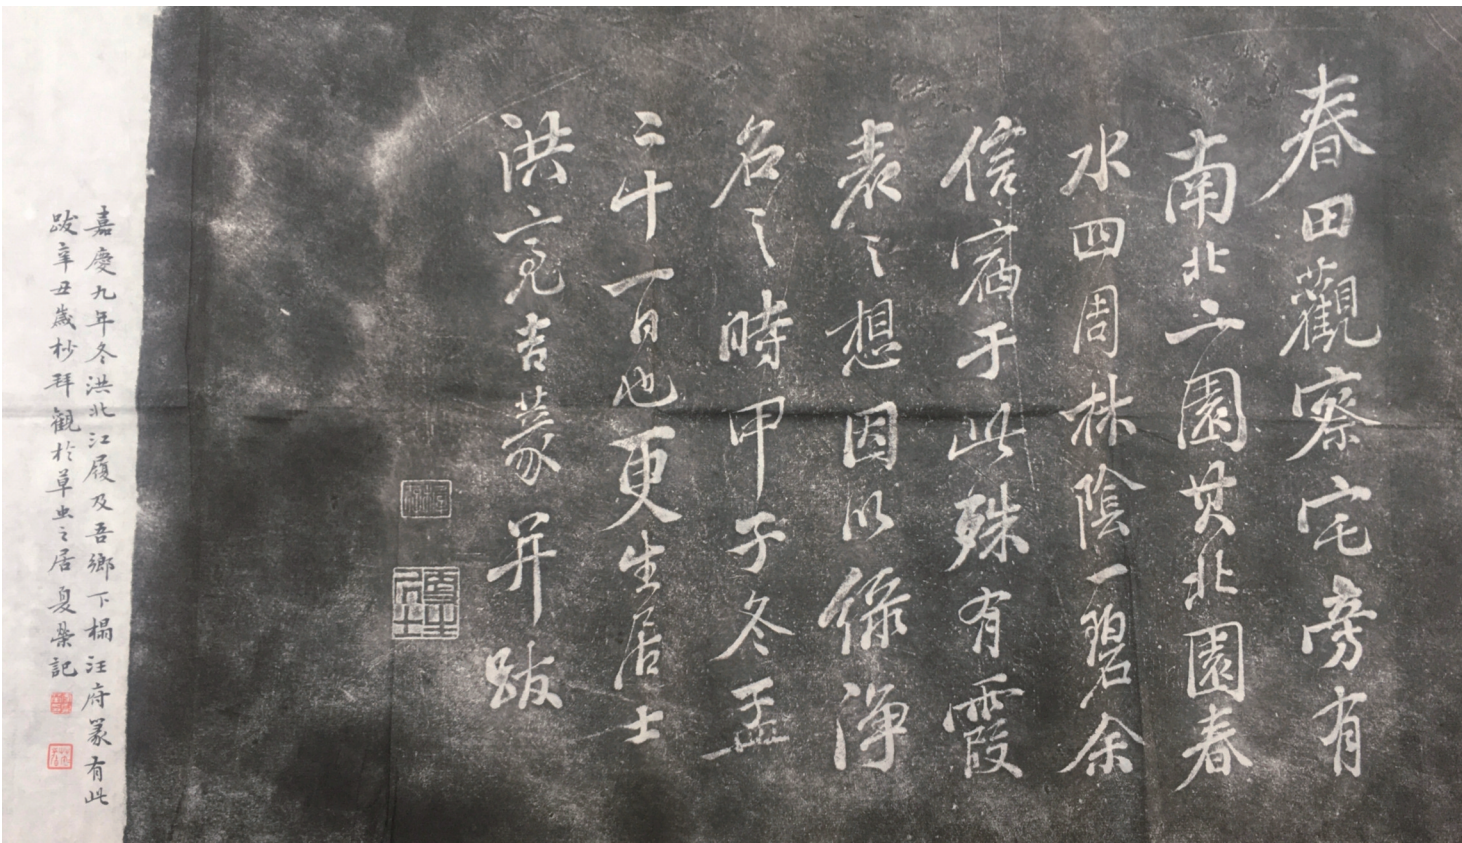 春田觀察宅旁有
南北二園其北園春
水四周林陰一碧余
信宿于此殊有霞
表之想因以綠淨
名之時甲子冬孟
二十一日也更生居士
洪亮吉篆并跋
嘉慶九年冬洪北江履及吾鄉下榻汪府篆有此
跋辛丑歲杪拜觀於草虫之居夏葉記